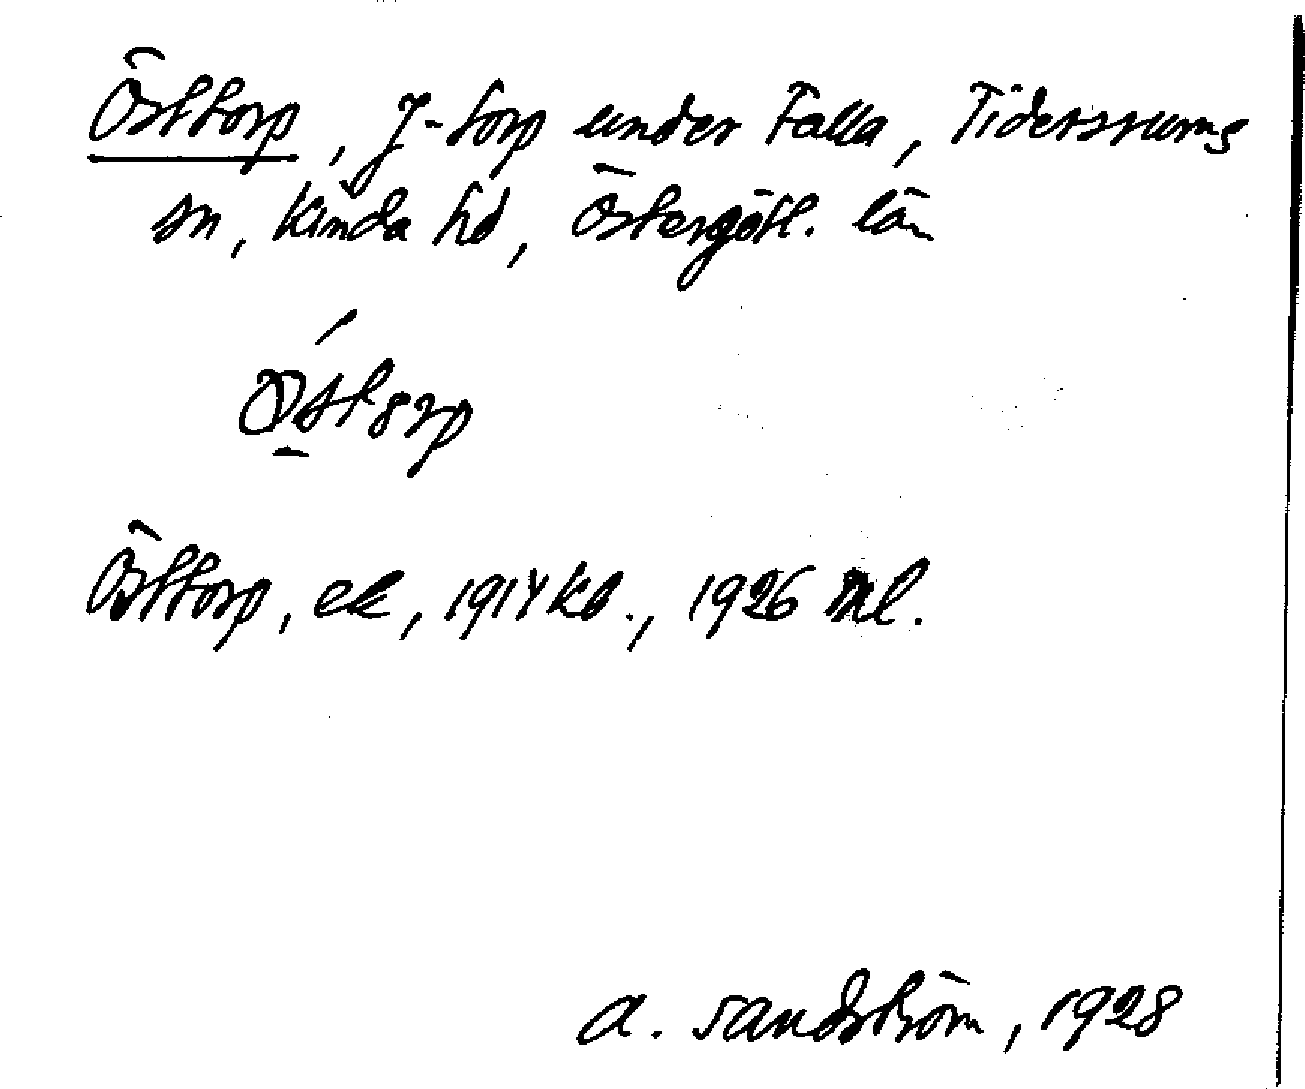 Östtorp, J-torp under Falla, Tidersrums
sn, Kinda hd, Östergötl. län
Östorp
Östtorp, ek, 1914 kb., 1926 ml.
A. Sandström, 1928